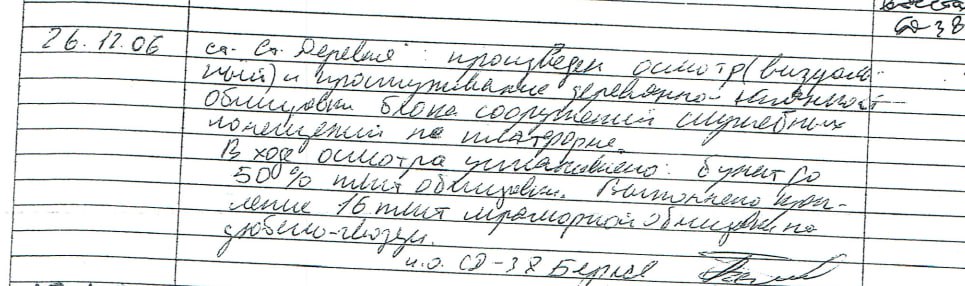 СД-38
26.12.06 ст. Ст. Деревня: произведен осмотр (визуаль-
ный) и простукивание деревянной
облицовки блока сооружений служебных
помещений на платформе.
В ходе осмотра установлено: бунит до
50% плит облицовки. Выполнено креп-
ление 16 плит мраморной облицовки на
дюбель-гвозди.
и.о. СД-38